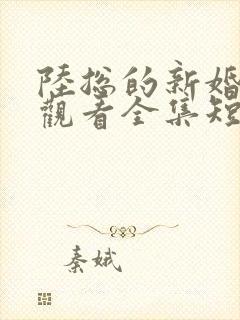 陸总的新婚
觀看全集短
秦娥